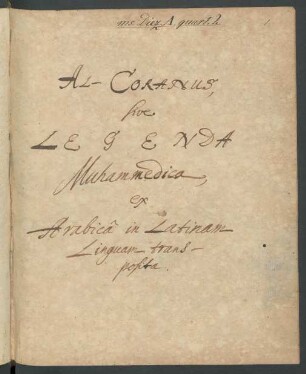 ms Diez A quart. 2.
1
AL-CORANUS,
sive
LEGENDA
Muhammedica,
ex
Arabicâ in Latinam
Linguam trans-
posita.